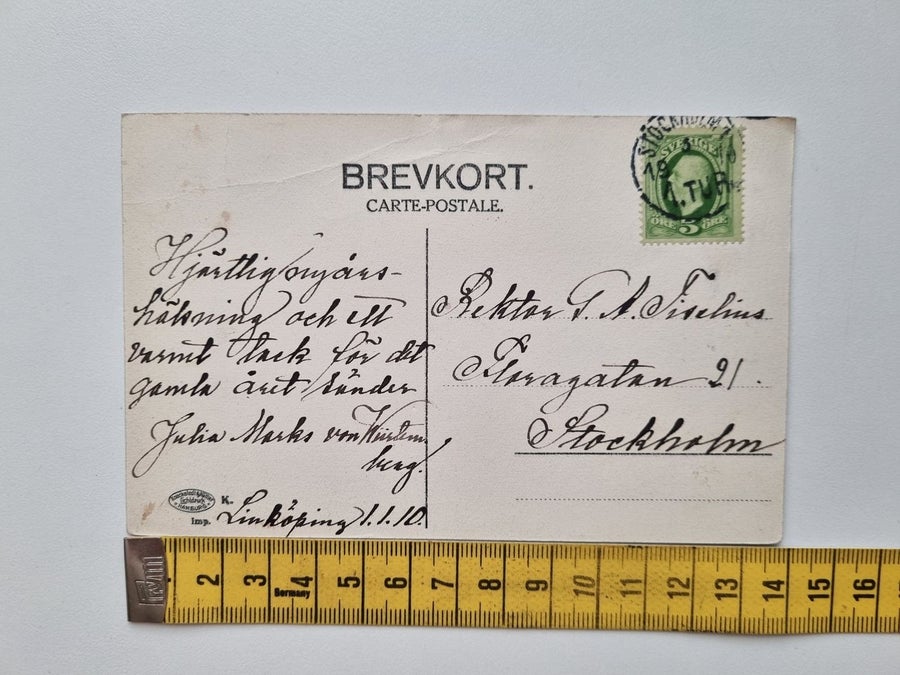 BREVKORT.
CARTE-POSTALE.
STOCKHOLM 1
19 1 10
1.TUR
SVERIGE
ÖRE 5 ÖRE
Hjärtlig nyårs-
hälsning och ett
varmt tack för det
gamla året sänder
Julia Marks von Würtem-
berg!
Linköping 1.1.10.
Rektor T. A. Tiselius
Floragatan 21.
Stockholm
K.
Imp.
HAMBURG
2 3 4 5 6 7 8 9 10 11 12 13 14 15 16
Germany